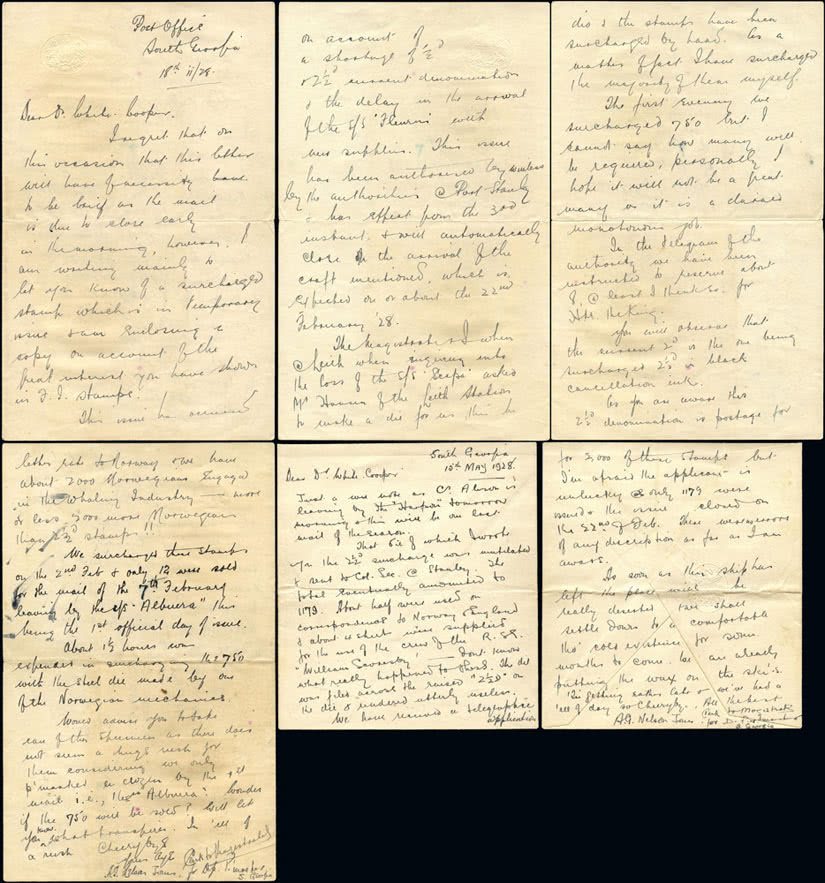 Post Office
South Georgia
18th ii/28.
Dear Dr White-Cooper.
I regret that on
this occasion that this letter
will have of necessity have
to be brief as the mail
is due to close early
in the morning, however, I
am writing mainly to
let you know of a surcharged
stamp which is in temporary
issue & am enclosing a
copy on account of the
great interest you have shown
in F.I. Stamps.
This issue has occurred
on account of
a shortage of ½d
& 2½d current denomination
& the delay in the arrival
of the S/S "Fleurus" with
new supplies. This issue
has been authorised by wireless
by the authorities @ Port Stanley
& has effect from the 3rd
instant & will automatically
close on the arrival of the
craft mentioned, which is
expected on or about the 22nd
February '28.
The Magistrate & I when
@ Leith when inquiring into
the loss of the S/S "Scapa" asked
Mr Hansen of the Leith Station
to make a die for us this he
did & the stamps have been
surcharged by hand. As a
matter of fact I have surcharged
the majority of them myself.
The first evening we
surcharged 750 but I
cannot say how many will
be required, personally I
hope it will not be a great
many as it is a darned
monotonous job.
In the Telegram of the
authority we have been
instructed to reserve about
8, @ least I think so, for
H.M. the King.
You will observe that
the current 2d is the one being
surcharged 2½d in black
cancellation ink.
As you are aware this
2½d denomination is postage for
letter rate to Norway & we have
about 2000 Norwegians engaged
in the Whaling Industry — more
or less 2000 more Norwegians
than 2½d stamps!!
We surcharged these stamps
on the 2nd Feb & only 12 were sold
for the mail of the 7th February
leaving by the S/S "Albuera" this
being the 1st official day of issue.
About 1½ hours was
expended in surcharging the 750
with the steel die made by one
of the Norwegian mechanics.
Would advise you to take
care of this specimen as there does
not seem a huge rush for
them considering we only
p'marked a dozen by the 1st
mail i.e., the "Albuera". Wonder
if the 750 will be sold? Will let
you know what transpires. In 'ell of
a rush Cheerybye
Yours Aye
A.I. Nelson Jones. Clerk to Magistrate &
for Dep. P. master
S. Georgia
South Georgia
15th May 1928.
Dear Dr White-Cooper
Just a wee note as
leaving by the "Harpon" tomorrow
morning & this will be our last
mail of the season.
That die of which I wrote
you the 2½d surcharge was mutilated
& sent to Col. Sec. @ Stanley. The
total eventually amounted to
1179. About half were used on
correspondence to Norway & England
& about a sheet were supplied
for the use of the crew of the R.S.S.
"William Scoresby" — Don't know
what really happened to these. The die
was filed across the raised "2½D" on
the die & rendered utterly useless.
We have received a telegraphic
application
for 2,000 of these stamps but
I'm afraid the applicant is
unlucky as only 1179 were
issued & the issue closed on
the 22nd of Feb. There were no errors
of any description as far as I am
aware.
As soon as this ship has
left the place will be
really deserted & we shall
settle down to a comfortable
tho' cold existence for some
months to come. We are already
putting the wax on the ski's.
'Tis getting rather late & we've had a
'ell of day so Cheerybye. All the best
A.I. Nelson Jones. Clerk to Magistrate
for D. Postmaster
S. Georgia